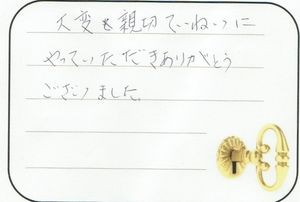 大変を親切ていねいに
やっていただきありがとう
ございました。